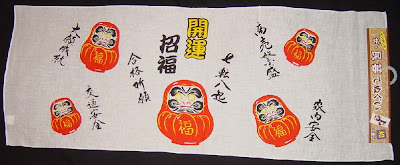 開運
招福
商売繁盛
七転八起
家内安全
合格祈願
大願成就
交通安全
福
福
福
福
福